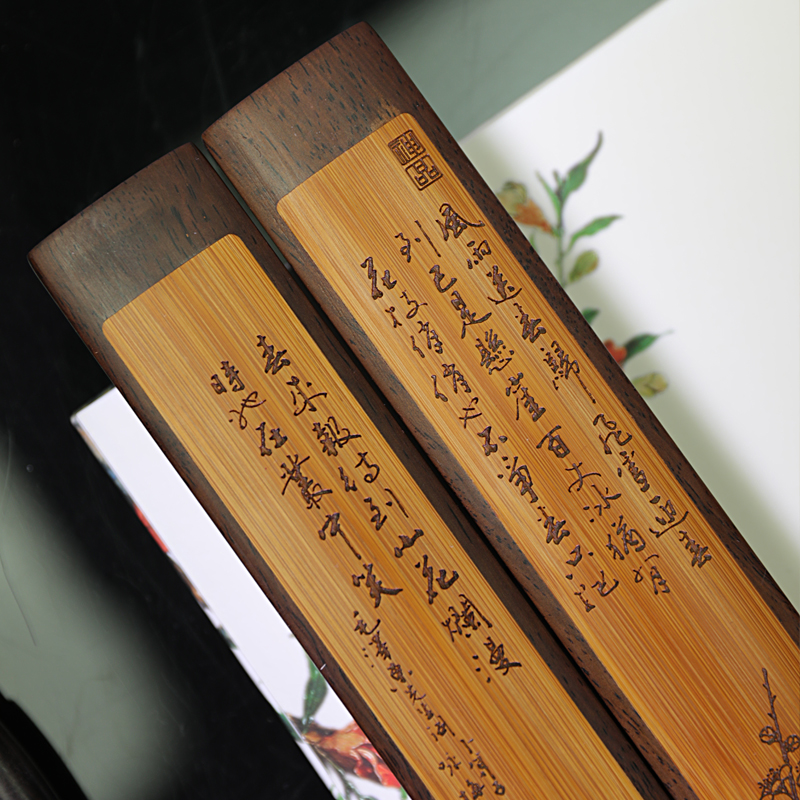 神品
風雨送春歸 飛雪迎春
到已是懸崖百丈冰猶有
花枝俏俏也不爭春只把
春來報待到山花爛漫
時她在叢中笑
毛澤東先生詞
卜算子
詠梅